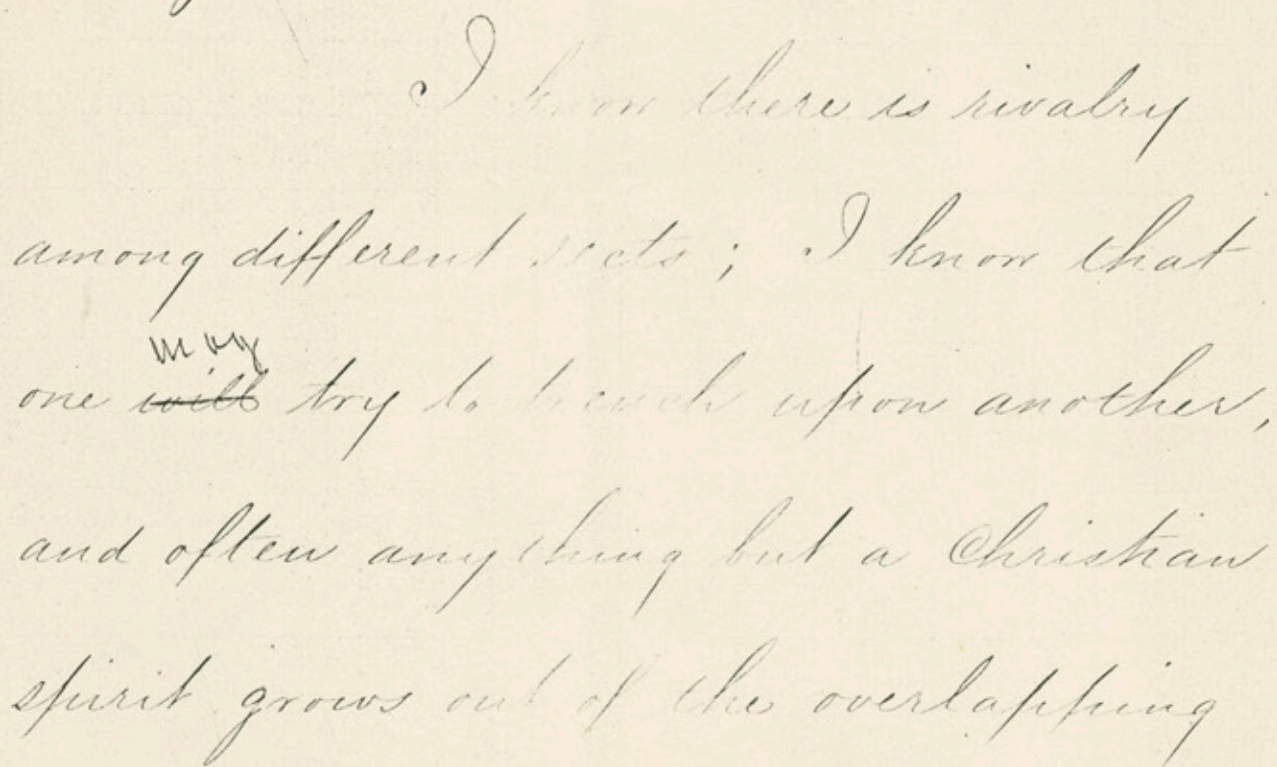 I know there is rivalry
among different sects; I know that
may
one will try to trench upon another,
and often anything but a Christian
spirit grows out of the overlapping